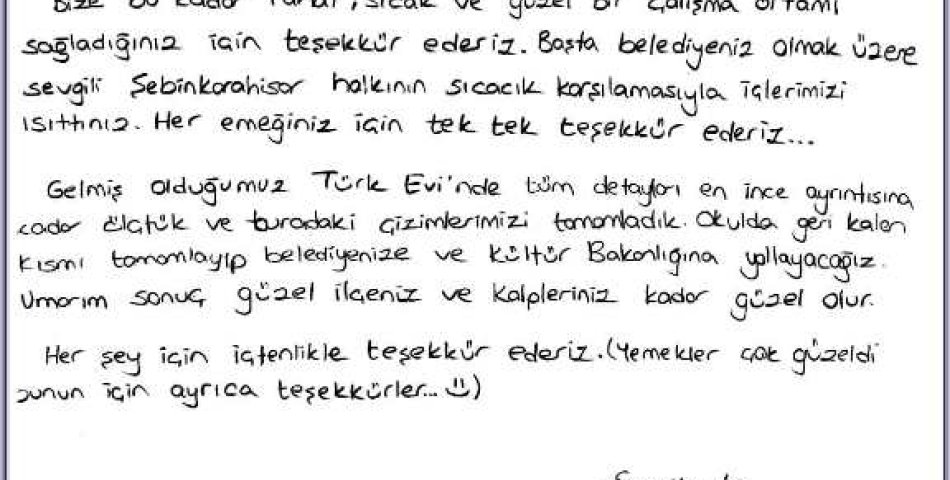 Bize bu kadar rahat, sıcak ve güzel bir çalışma ortamı
sağladığınız için teşekkür ederiz. Başta belediyeniz olmak üzere
sevgili Şebinkarahisar halkının sıcacık karşılamasıyla içlerimizi
ısıttınız. Her emeğiniz için tek tek teşekkür ederiz...
Gelmiş olduğumuz Türk Evi'nde tüm detayları en ince ayrıntısına
kadar ölçtük ve buradaki çizimlerimizi tamamladık. Okulda geri kalan
kısmı tamamlayıp belediyenize ve Kültür Bakanlığına yollayacağız.
Umarım sonuç güzel ilçeniz ve kalpleriniz kadar güzel olur.
Her şey için içtenlikle teşekkür ederiz. (Yemekler çok güzeldi
bunun için ayrıca teşekkürler... :))